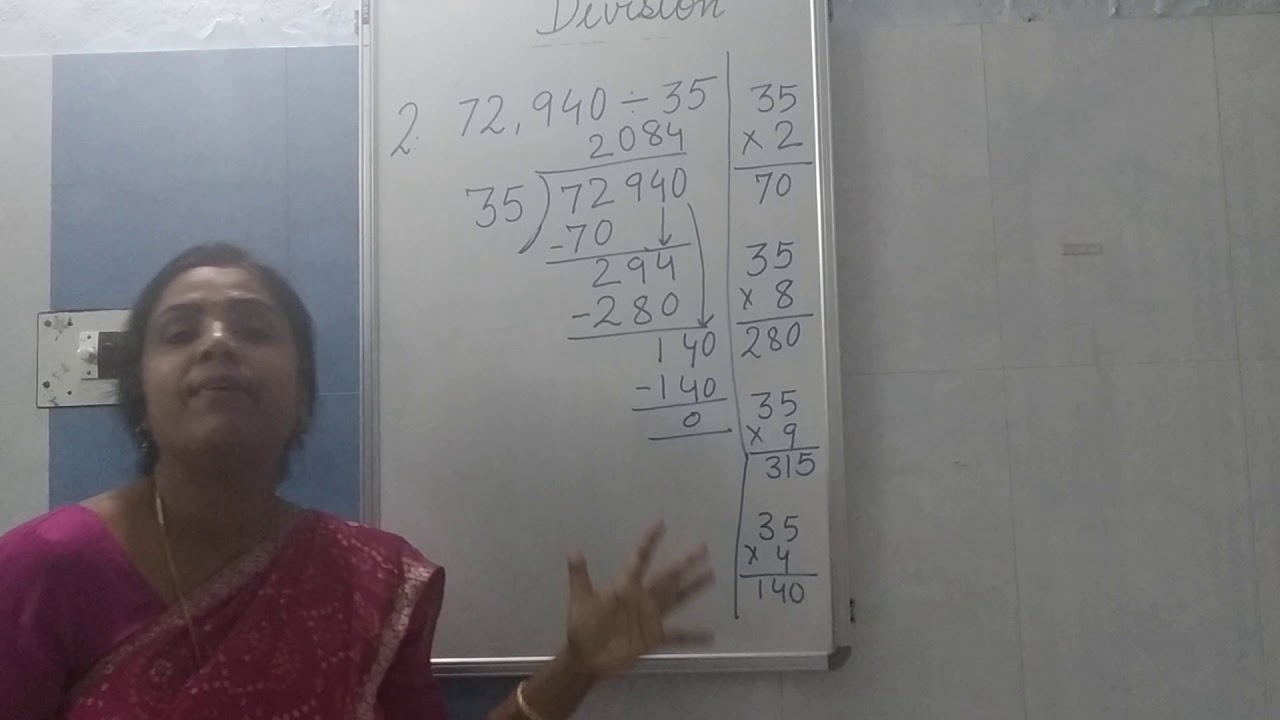 Division
2. 72,940 ÷ 35
2084
35)72940
-70
294
-280
140
-140
0
35
× 2
70
35
× 8
280
35
× 9
315
35
× 4
140